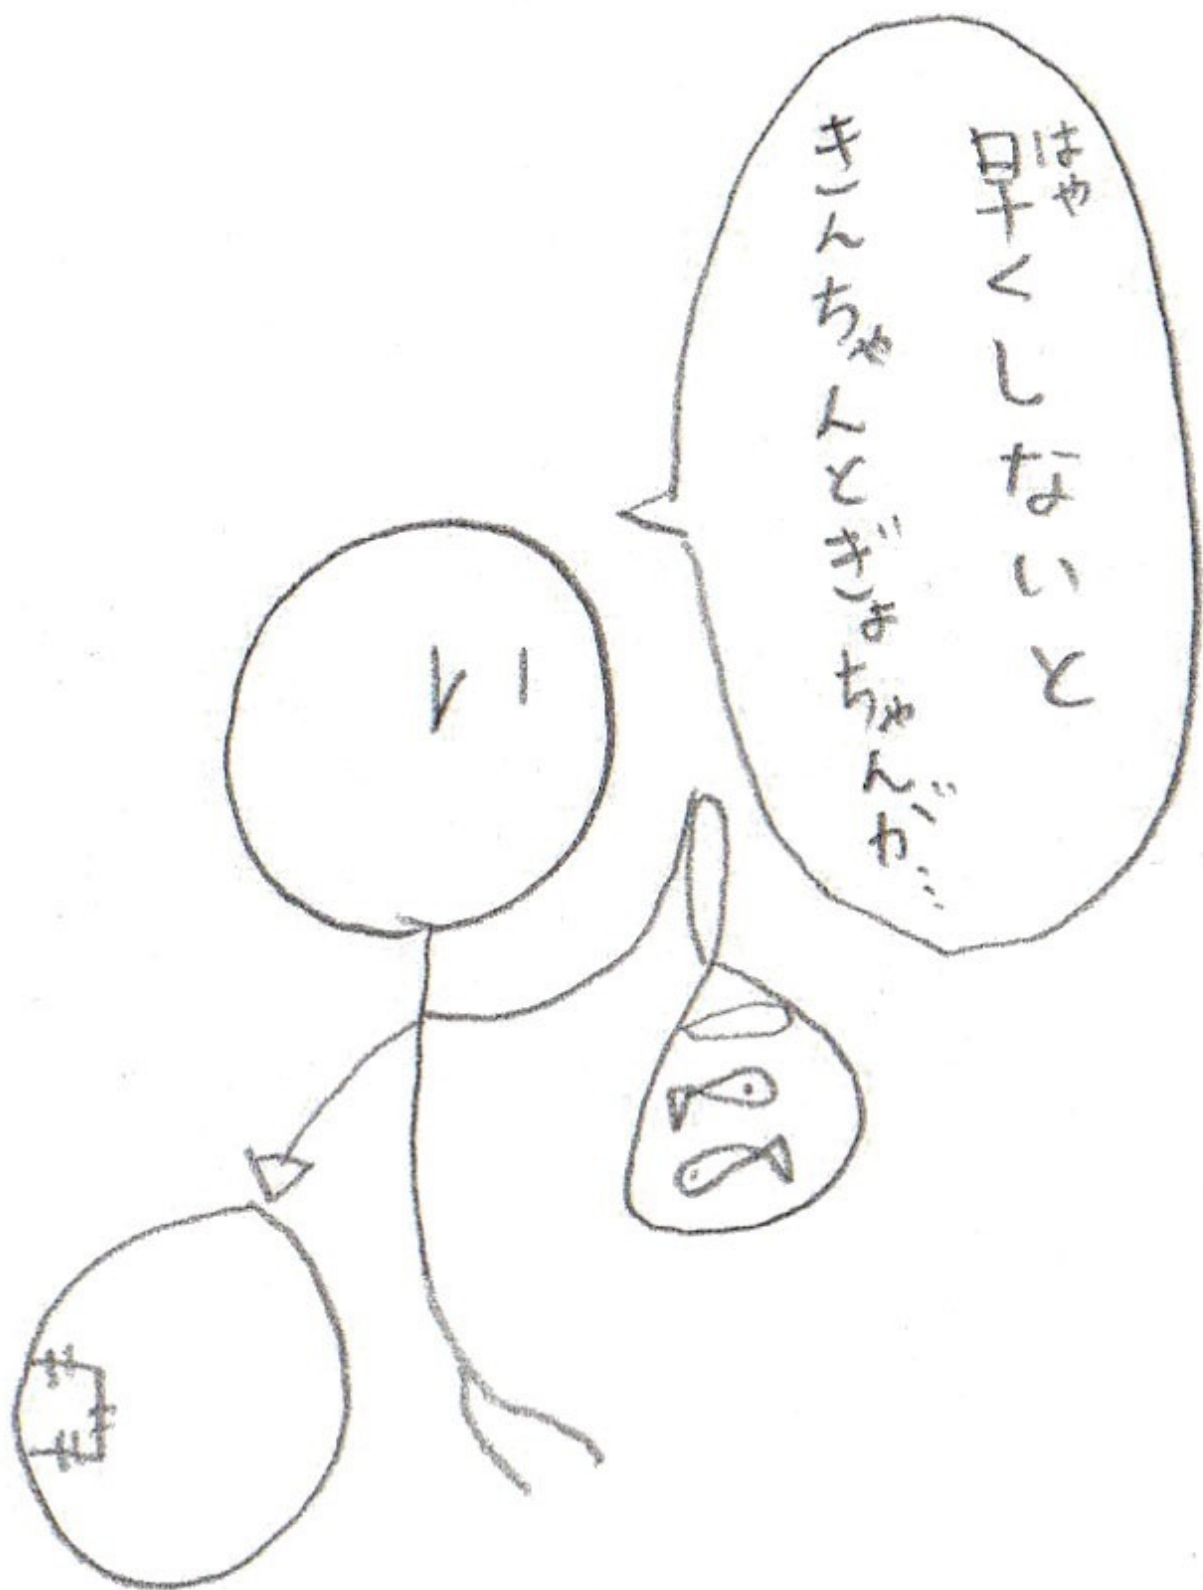 早くしないと
はや
きんちゃんとぎょちゃんが…